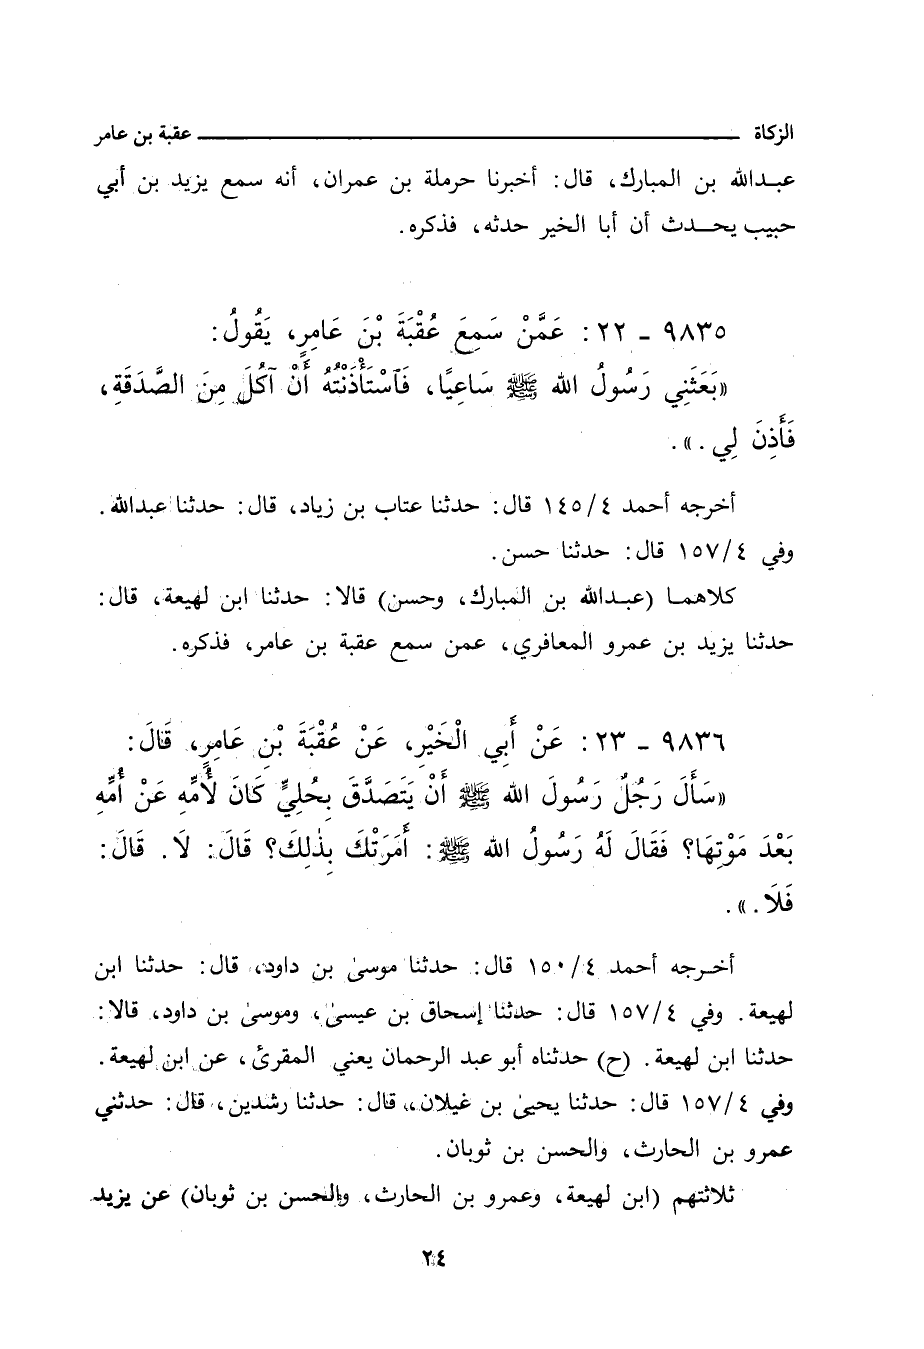 الزكاة ــــــــــ عقبة بن عامر
عبدالله بن المبارك، قال: أخبرنا حرملة بن عمران، أنه سمع يزيد بن أبي
حبيب يحدث أن أبا الخير حدثه، فذكره.
٩٨٣٥ ـ ٢٢: عَمَّنْ سَمِعَ عُقْبَةَ بْنَ عَامِرٍ، يَقُولُ:
«بَعَثَنِي رَسُولُ الله ﷺ سَاعِيًا، فَآسْتَأْذَنْتُهُ أَنْ آكُلَ مِنَ الصَّدَقَةِ،
فَأَذِنَ لِي.».
أخرجه أحمد ١٤٥/٤ قال: حدثنا عتاب بن زياد، قال: حدثنا عبدالله.
وفي ١٥٧/٤ قال: حدثنا حسن.
كلاهما (عبدالله بن المبارك، وحسن) قالا: حدثنا ابن لهيعة، قال:
حدثنا يزيد بن عمرو المعافري، عمن سمع عقبة بن عامر، فذكره.
٩٨٣٦ ـ ٢٣: عَنْ أَبِي الْخَيْرِ، عَنْ عُقْبَةَ بْنِ عَامِرٍ، قَالَ:
«سَأَلَ رَجُلٌ رَسُولَ الله ﷺ أَنْ يَتَصَدَّقَ بِحُلِيٍّ كَانَ لأُمِّهِ عَنْ أُمِّهِ
بَعْدَ مَوْتِهَا؟ فَقَالَ لَهُ رَسُولُ الله ﷺ: أَمَرَتْكَ بِذٰلِكَ؟ قَالَ: لَا. قَالَ:
فَلَا.».
أخرجه أحمد ١٥٠/٤ قال: حدثنا موسىٰ بن داود، قال: حدثنا ابن
لهيعة. وفي ١٥٧/٤ قال: حدثنا إسحاق بن عيسىٰ، وموسىٰ بن داود، قالا:
حدثنا ابن لهيعة. (ح) حدثناه أبو عبد الرحمان يعني المقرئ، عن ابن لهيعة.
وفي ١٥٧/٤ قال: حدثنا يحيىٰ بن غيلان، قال: حدثنا رشدين، قال: حدثني
عمرو بن الحارث، والحسن بن ثوبان.
ثلاثتهم (ابن لهيعة، وعمرو بن الحارث، والحسن بن ثوبان) عن يزيد
٢٤